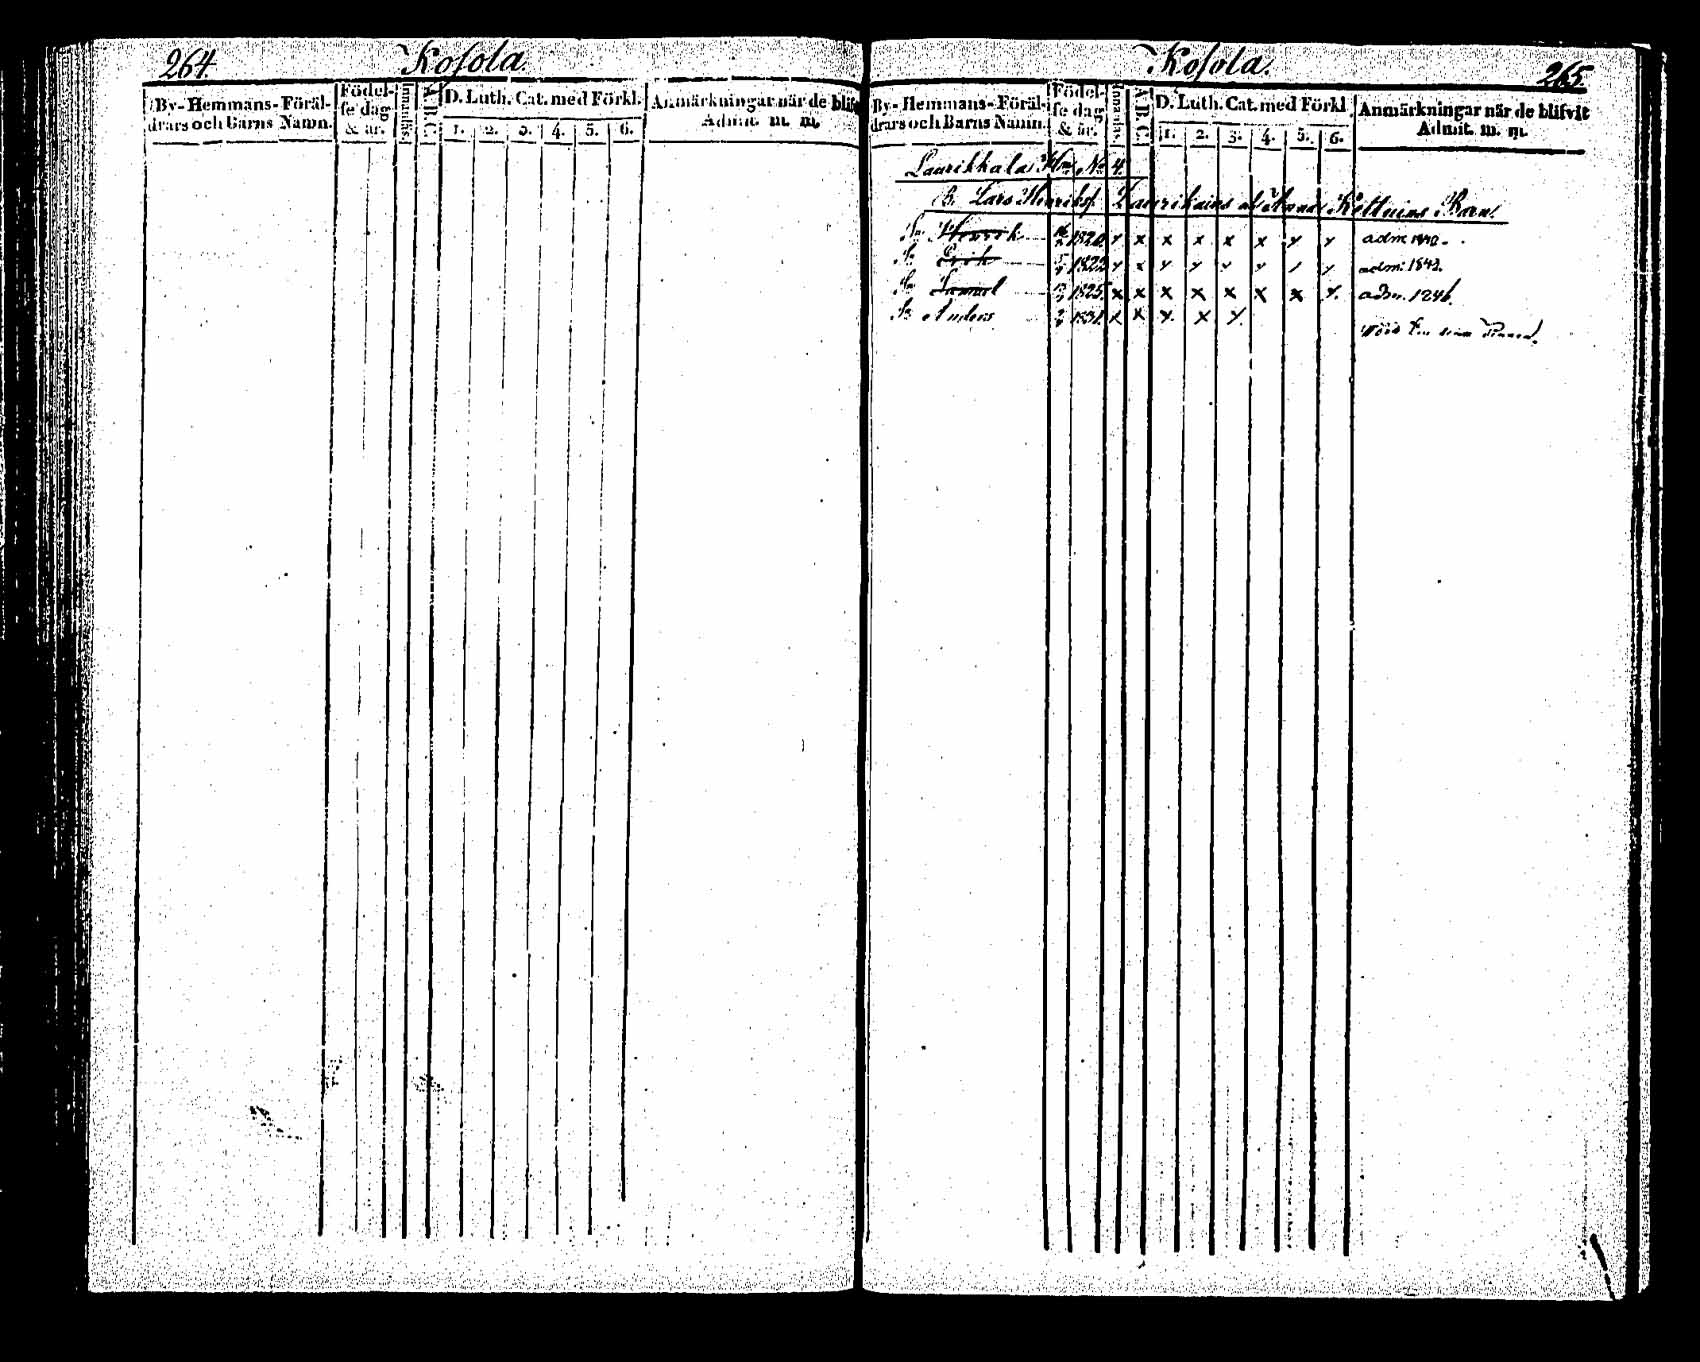 264.
Kosola
By- Hemmans- Föräl-
drars och Barns Namn.
Födel-
se dag
& år.
Innanläs.
A.B.C.
D. Luth. Cat. med Förkl.
1. 2. 3. 4. 5. 6.
Anmärkningar när de blif
Admit. m. m.
Kosola.
265.
By- Hemmans- Föräl-
drars och Barns Namn.
Födel-
se dag
& år.
Innanläs.
A.B.C.
D. Luth. Cat. med Förkl.
1. 2. 3. 4. 5. 6.
Anmärkningar när de blifvit
Admit. m. m.
Laurikkala Hem. No 4.
B. Lars Henriks. Laurikains Barn.
Sn Henrik 1820 x x x x x x x x adm
Sn Erik 1822 x x x x x x x x adm: 1842.
Sn Samuel 1825 x x x x x x x x adm. 1246
Sn Anders 1831 x x x x x